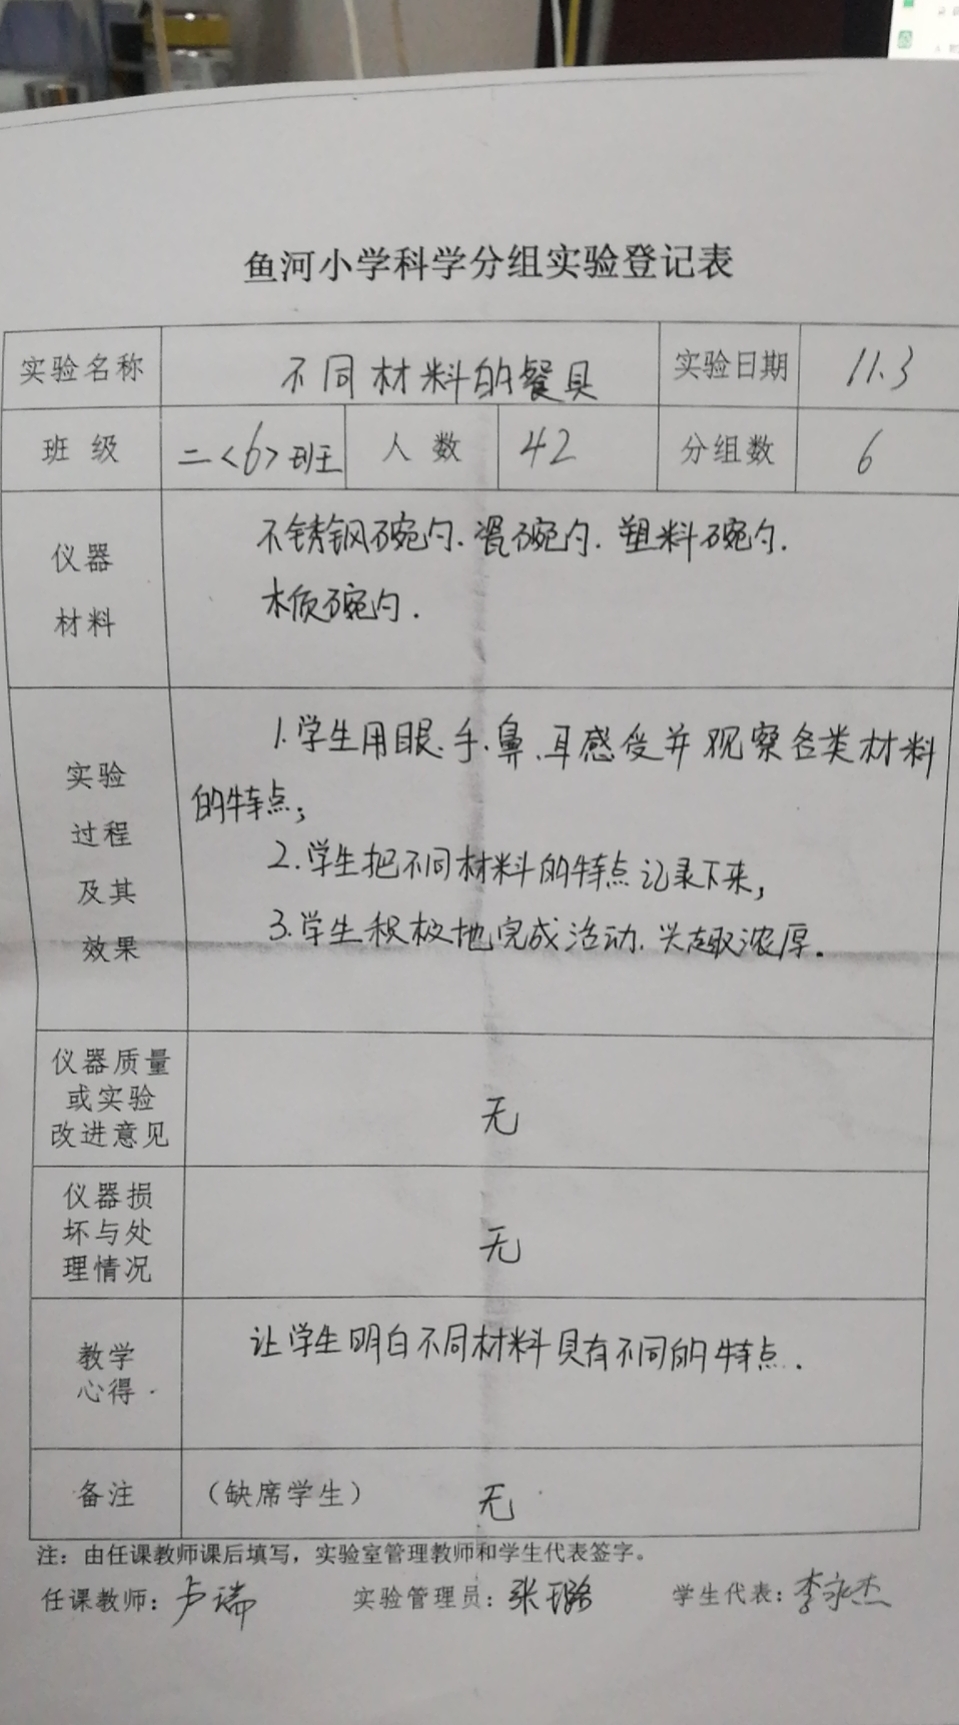 鱼河小学科学分组实验登记表
实验名称 不同材料的餐具 实验日期 11.3
班级 二<6>班 人数 42 分组数 6
仪器
材料
不锈钢碗勺.瓷碗勺.塑料碗勺.
木质碗勺.
实验
过程
及其
效果
1.学生用眼、手、鼻、耳感受并观察各类材料
的特点;
2.学生把不同材料的特点记录下来,
3.学生积极地完成活动、兴趣浓厚.
仪器质量
或实验
改进意见
无
仪器损
坏与处
理情况
无
教学
心得
让学生明白不同材料具有不同的特点.
备注 (缺席学生) 无
注:由任课教师课后填写,实验室管理教师和学生代表签字。
任课教师:卢瑞 实验管理员:张璐 学生代表:李永杰